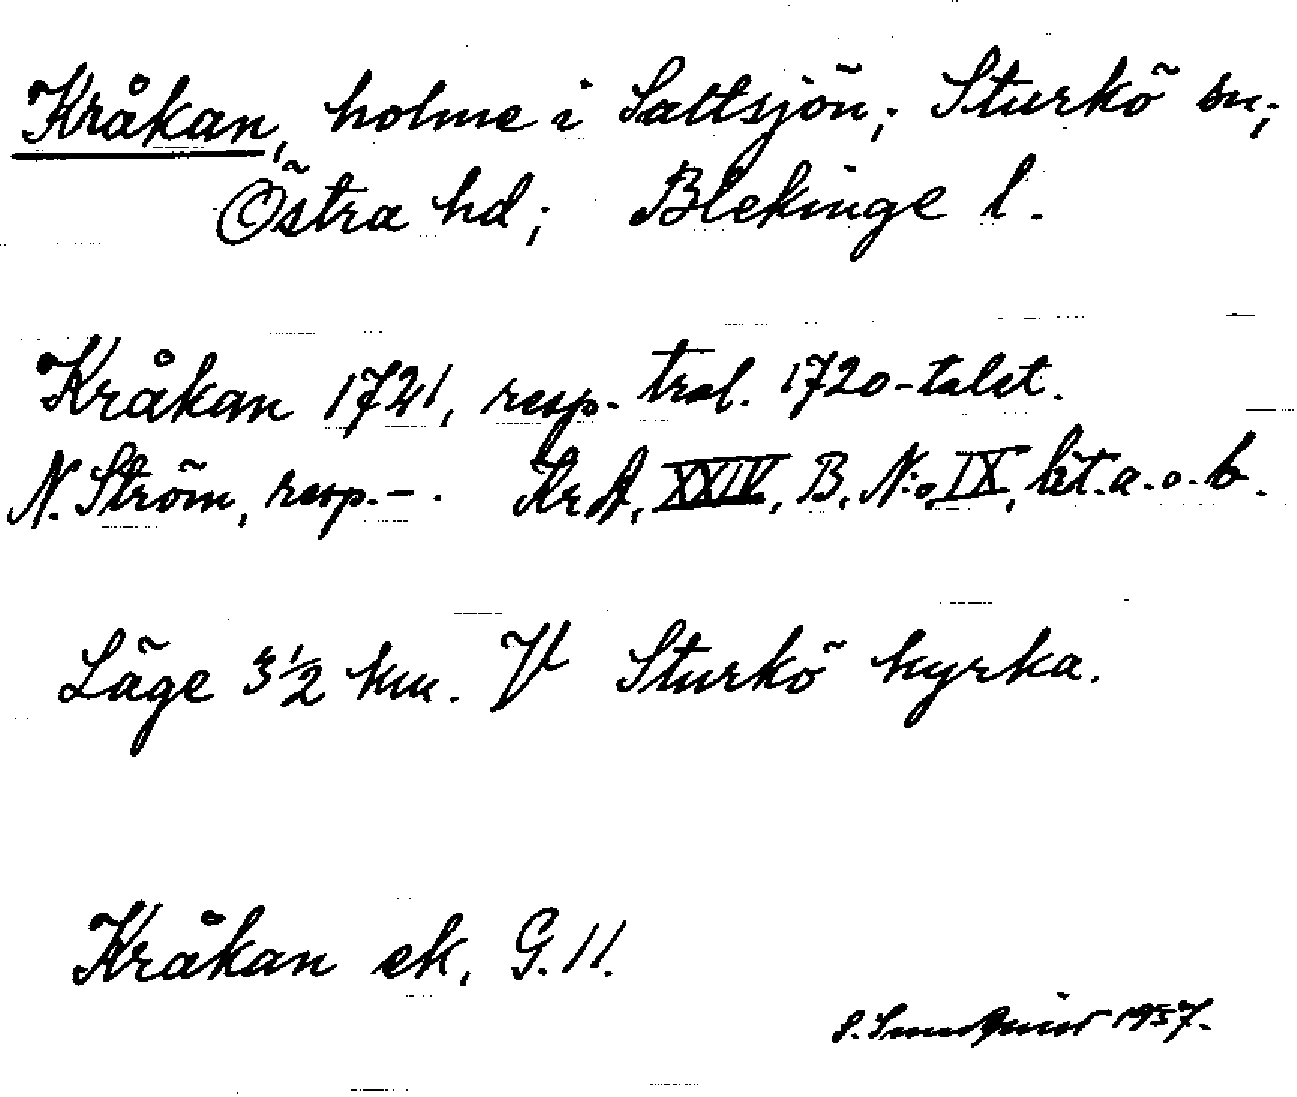 Kråkan, holme i Saltsjön; Sturkö sn;
Östra hd; Blekinge l.
Kråkan 1721, resp. trol. 1720-talet.
N. Ström, resp. - . Kr A, XXIV, B. N:o IX, lit. a. o. b.
Läge 3 1/2 km. V Sturkö kyrka.
Kråkan ek, G. 11.
S. 1937.